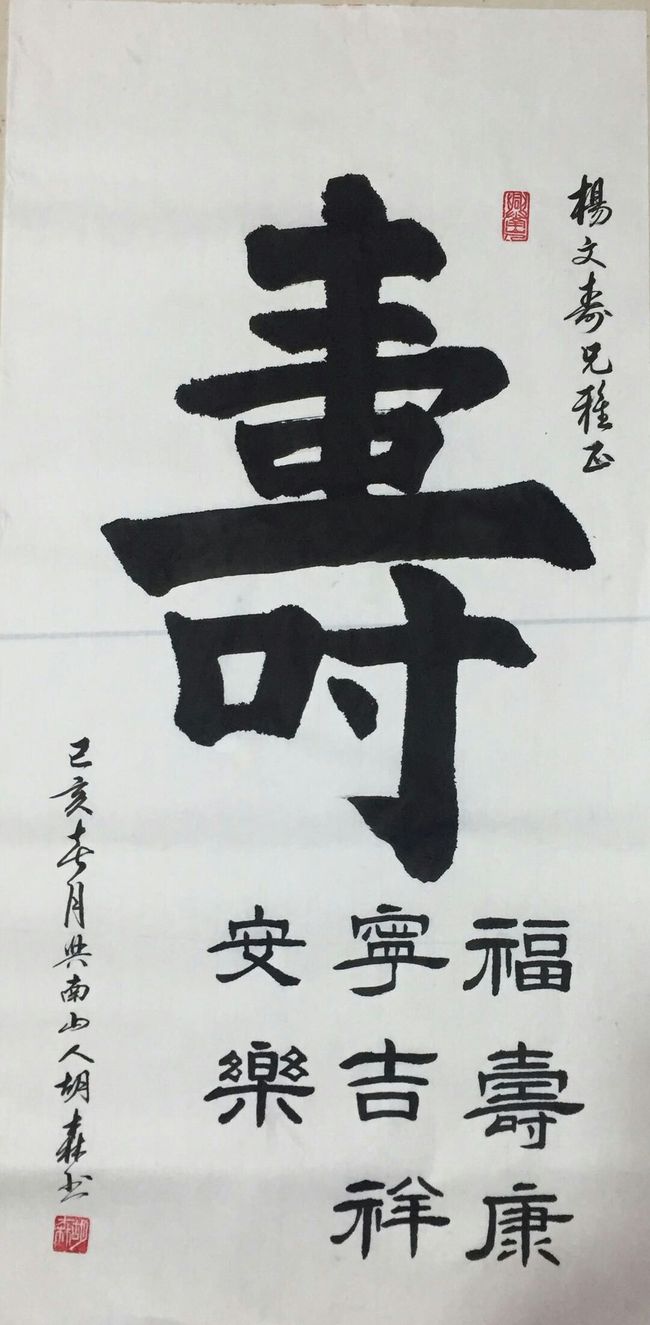 楊文壽兄雅正
壽
福壽康
寧吉祥
安樂
己亥春月興南山人胡森书